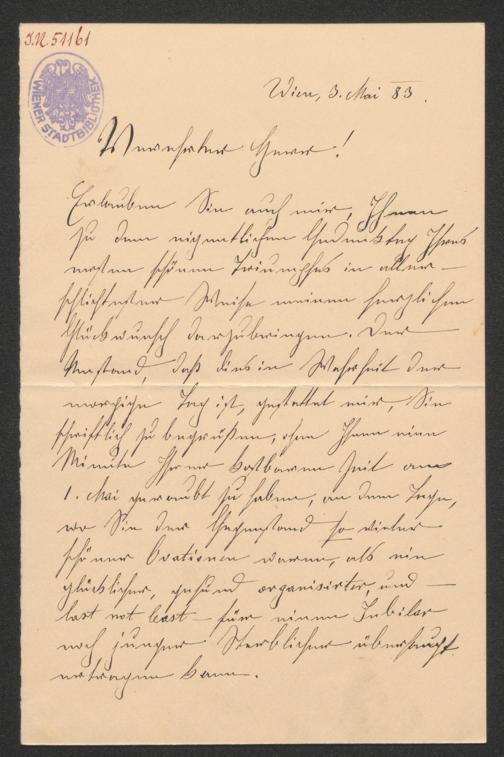 J.N. 51161
WIENER STADTBIBLIOTHEK
Wien, 3. Mai 83.
Verehrter Herr!
Erlauben Sie auch mir, Ihnen
zu dem eigentlichen Gedenktag Ihres
ersten schönen Triumphes in aller-
schlichtester Weise meinen herzlichen
Glückwunsch darzubringen. Der
Umstand, daß dies in Wahrheit der
morgige Tag ist, gestattet mir, Sie
schriftlich zu begrüßen, ohne Ihnen eine
Minute Ihrer kostbaren Zeit am
1. Mai geraubt zu haben, an dem Tage,
wo Sie der Gegenstand so vieler
schöner Ovationen waren, als ein
glücklicher, gesund organisirter, und —
last not least — für einen Jubilar
noch junger Sterblicher überhaupt
ertragen kann.